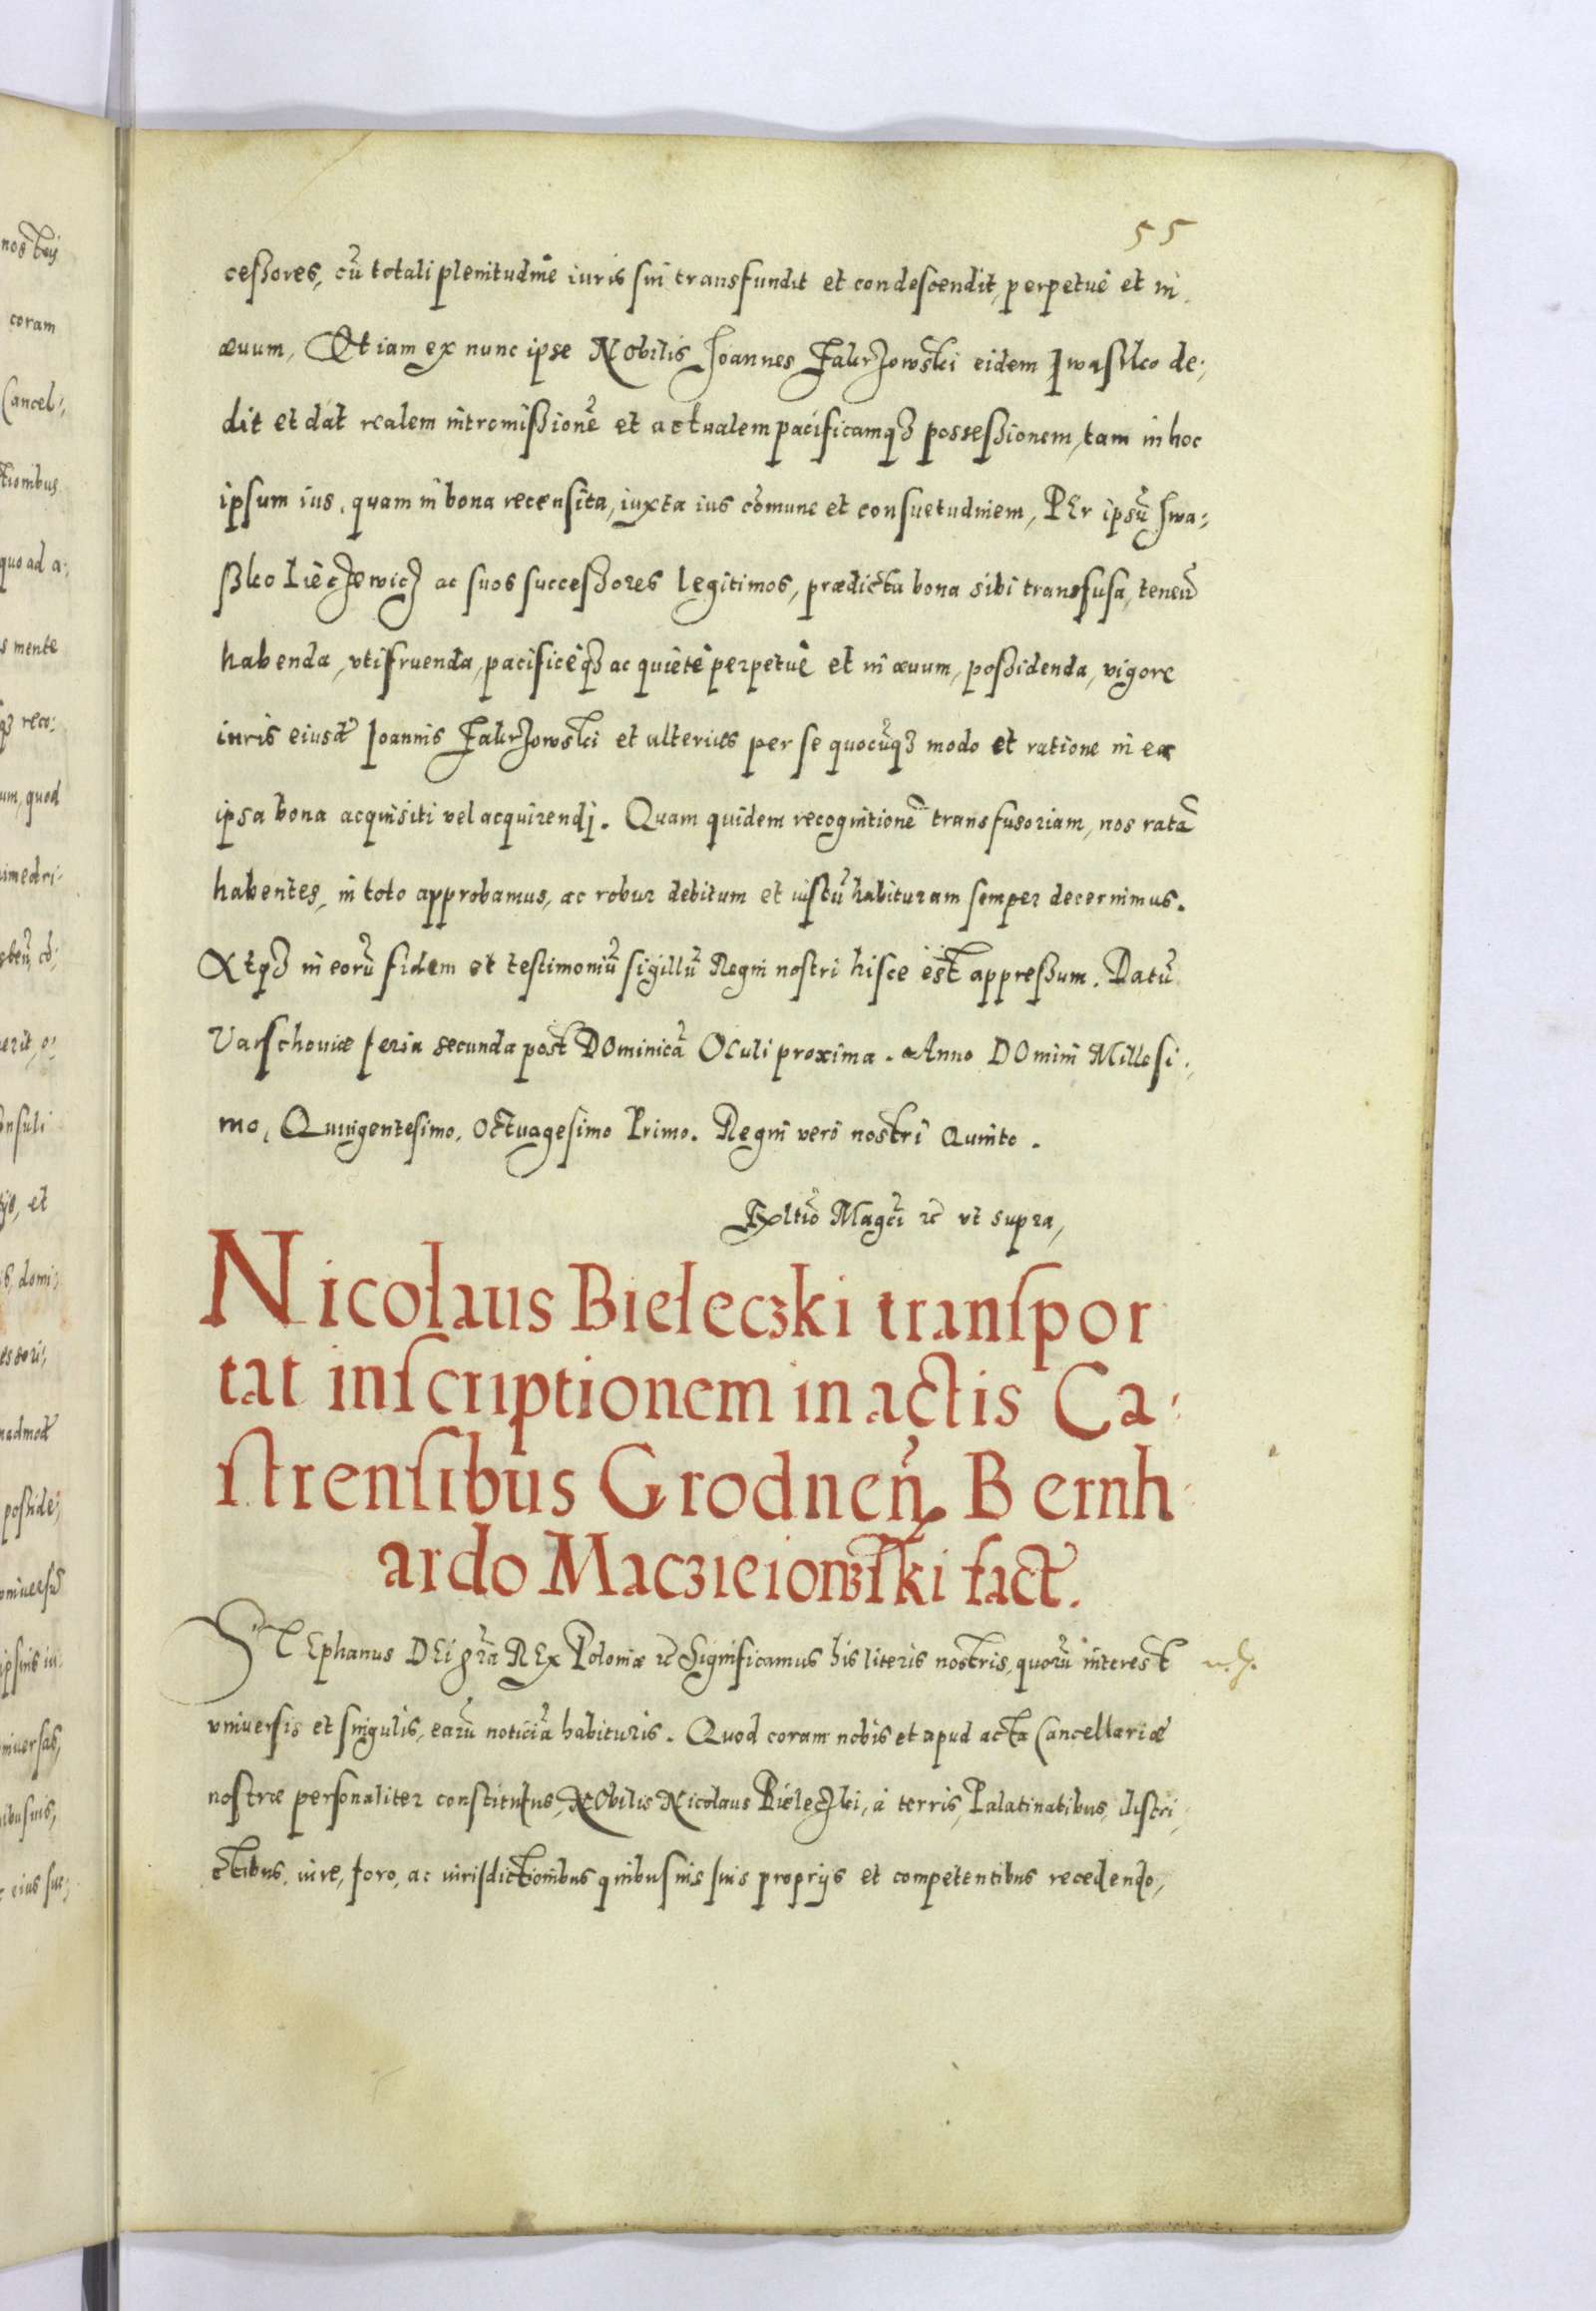 55
ceßores, cũ totali plenitudine iuris sui transfundit et condescendit, perpetuè et in
æuum, Et iam ex nunc ipse NObilis Joannes Zakrzowski eidem Iwasƶko de,
dit et dat realem intromißionẽ et actualem pacificamqꝫ posseßionem, tam in hoc
ipsum ius, quam in bona recensita, iuxta ius cõmune et consuetudinem, PEr ipsũ Iwa,
ßko Liêczewicz ac suos succeßores legitimos, prædicta bona sibi transfusa, tenen̄
habenda, vtifruenda, pacificèqꝫ ac quiètè perpetuè et in æuum, poßidenda, vigore
iuris eiusd̃ Ioannis Zakrzowski et alterius per se quocũqꝫ modo et ratione in ea
ipsa bona acquisiti vel acquirendj. Quam quidem recognitionẽ transfusoriam, nos ratã
habentes, in toto approbamus, ac robur debitum et iustũ habituram semper decernimus.
Atqꝫ in eorũ fidem et testimoniũ sigillũ Regni nostri hisce est appreßum. Datũ
Varschouiæ feria secunda post DOminicã OCuli proxima. Anno DOmini Millesi,
mo, Quingentesimo, Octuagesimo Primo. Regni verò nostri Quinto.
Rxltiõ Magcĩ ꝛc̃ vt supra,
Nicolaus Bieleczki transpor
tat inscriptionem in actis Ca,
strensibus Grodnen̄. Bernh,
ardo Maczieiowski fact̃.
STEphanus DEi grã REx Poloniæ ꝛc̃ Significamus his literis nostris, quorũ interest
vniuersis et singulis, earũ noticiã habituris. Quod coram nobis et apud acta Cancellariæ
nostræ personaliter constitutus, NObilis Nicolaus Bieleczki, à terris, Palatinatibus, distri,
ctibus, iure, foro, ac iurisdictionibus quibusuis suis proprijs et competentibus recedendo,